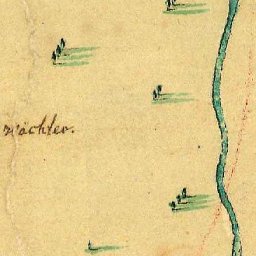 wächter.